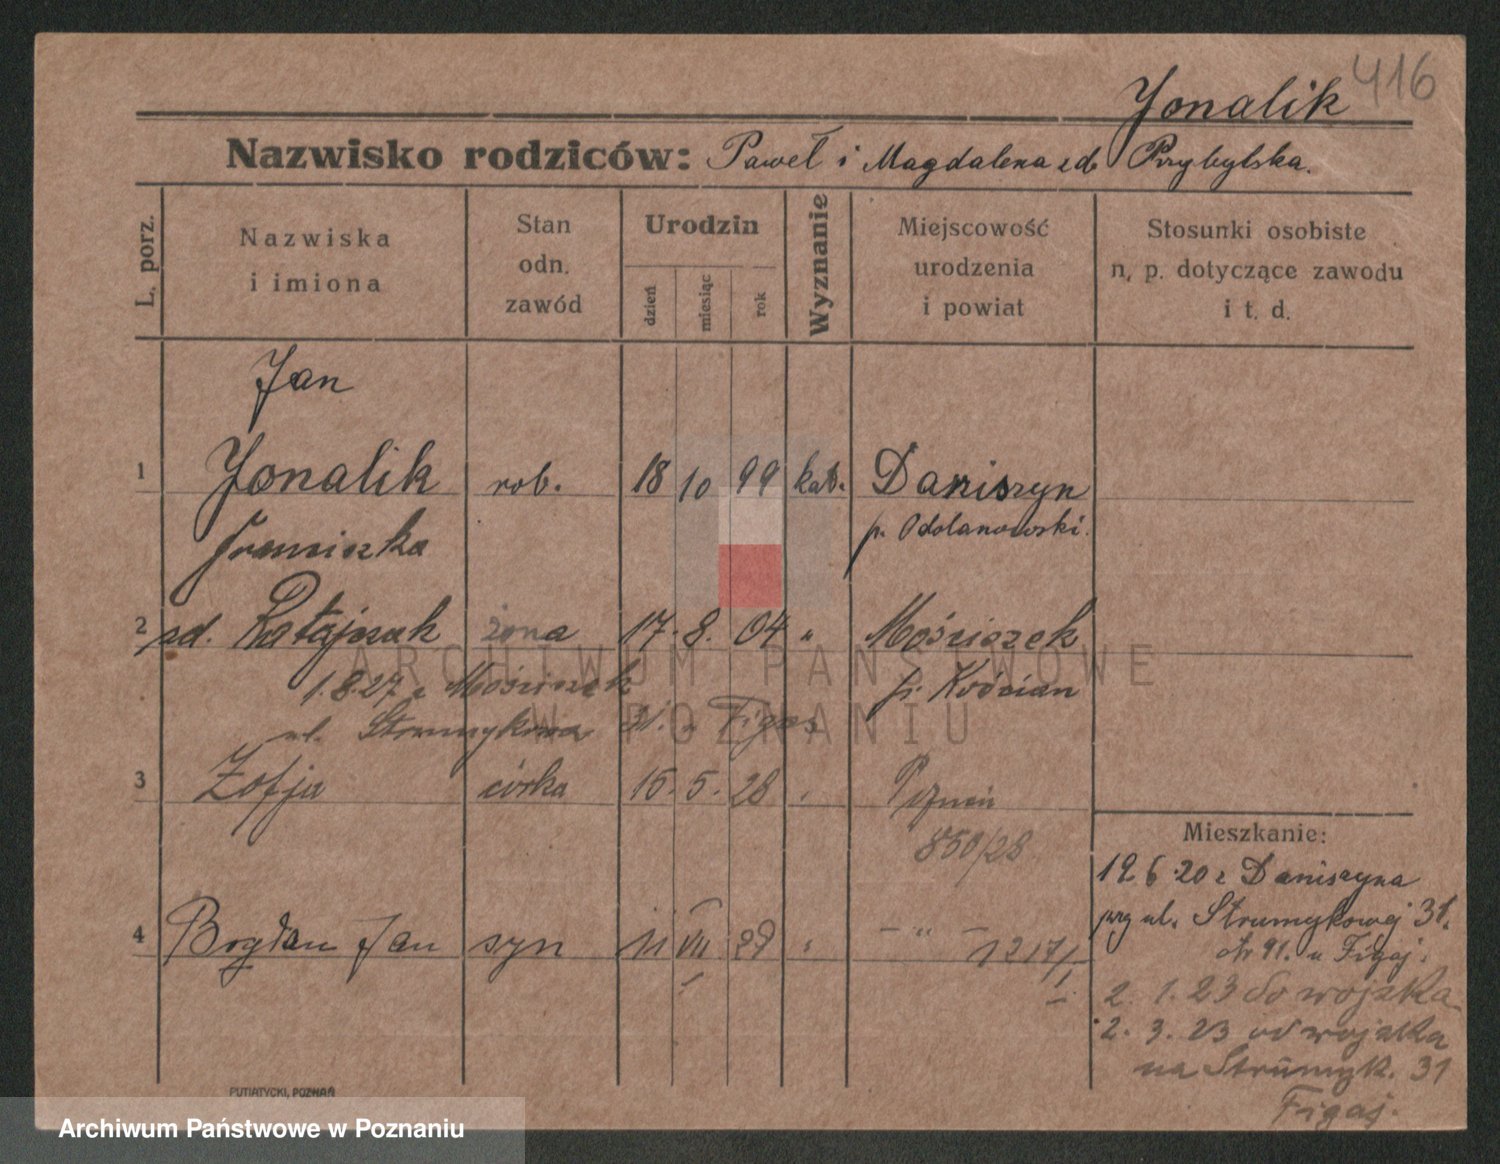 416
Jonalik
Nazwisko rodziców: Paweł i Magdalena zd. Przybylska.
L. porz.
Nazwiska
i imiona
Stan
odn.
zawód
Urodzin
dzień
miesiąc
rok
Wyznanie
Miejscowość
urodzenia
i powiat
Stosunki osobiste
n. p. dotyczące zawodu
i t. d.
Jan
1 Jonalik rob. 18 10 99 kat. Daniszyn
Franciszka p. Odolanowski.
2 zd. Ratajczak żona 17. 8. 04 " Mościszek
1.8.27 z Mościszek p. Kościan
ul. Strumykowa 31. u Figas
3 Zofja córka 15. 5. 28 Poznań
850/28
4 Bogdan Jan syn 11 VII 29 - " - 1217/
Mieszkanie:
19 6 20 z Daniszyna
przy ul. Strumykowej 31.
u Figaj.
2. 1. 23 do wojska
2. 3. 23 od wojska
na Strumyk. 31
Figaj.
PUTIATYCKI, POZNAŃ
ARCHIWUM PAŃSTWOWE
W POZNANIU
Archiwum Państwowe w Poznaniu